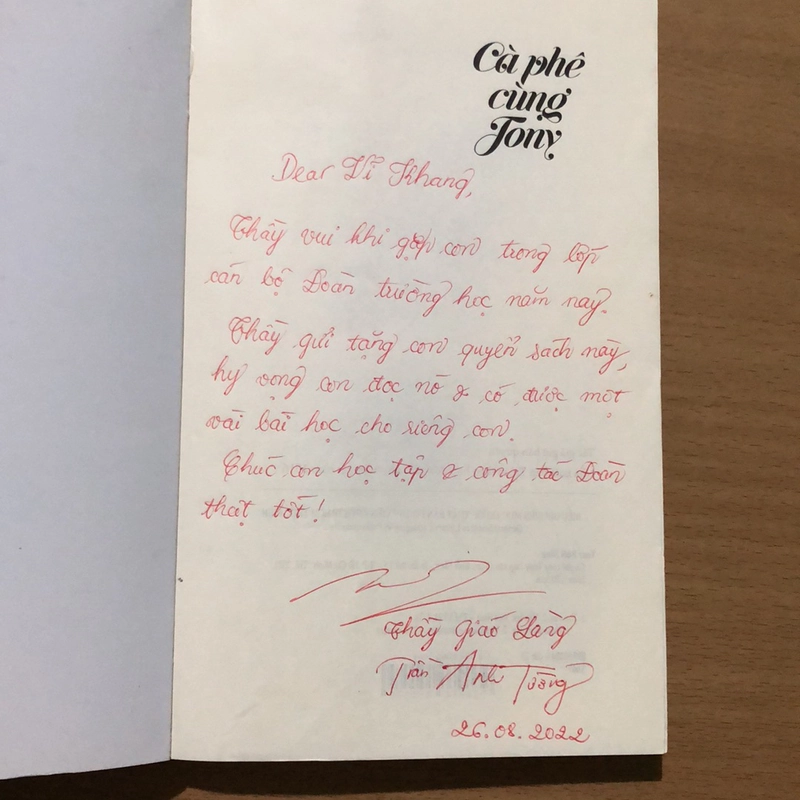 Cà phê
cùng
Tony
Dear Vĩ Khang,
Thầy vui khi gặp con trong lớp
cán bộ Đoàn trường học năm nay.
Thầy gửi tặng con quyển sách này,
hy vọng con đọc nó & có được một
vài bài học cho riêng con.
Chúc con học tập & công tác Đoàn
thật tốt!
Thầy Giáo Làng
Trần Anh Tường
26.08.2022